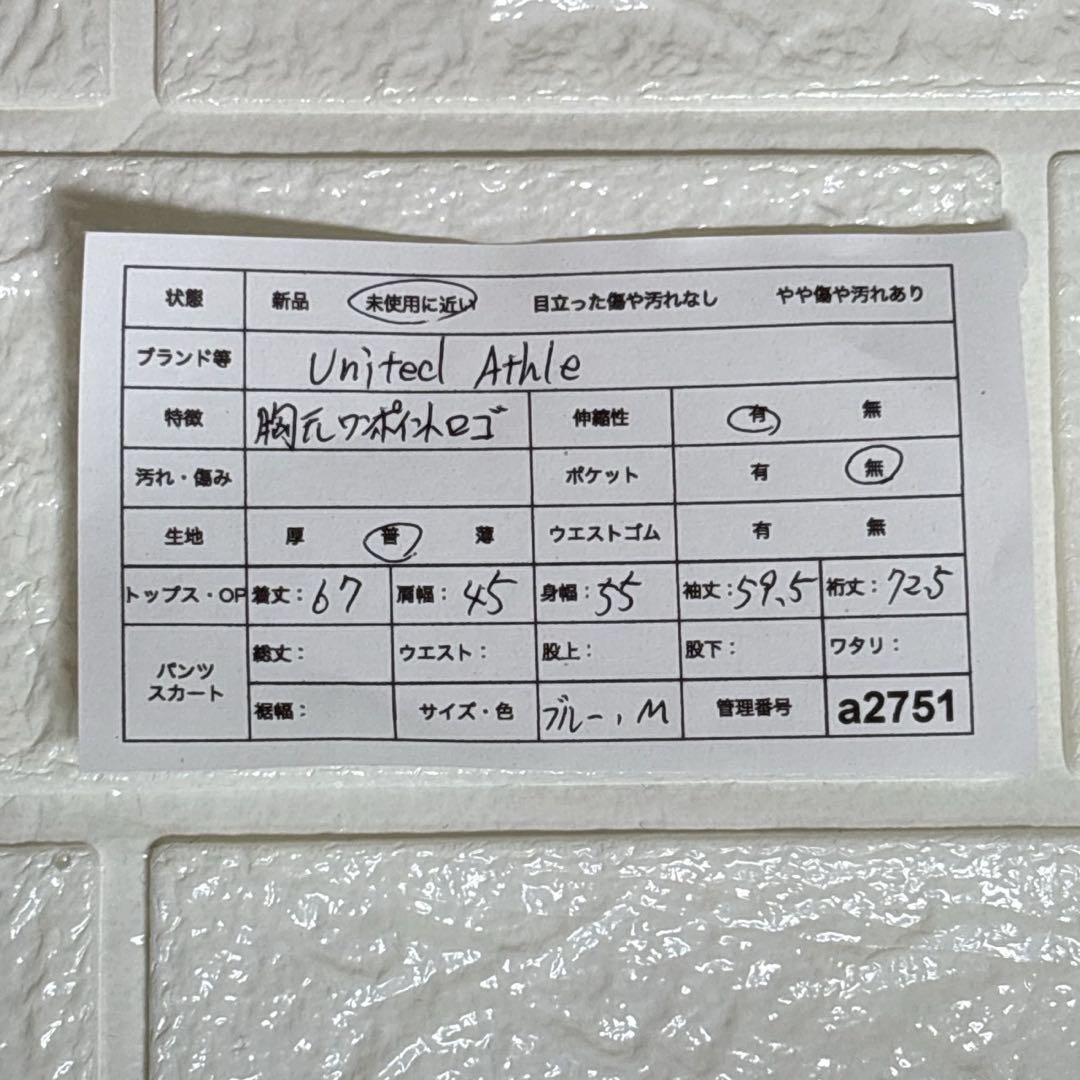 状態 新品 未使用に近い 目立った傷や汚れなし やや傷や汚れあり
ブランド等 United Athle
特徴 胸元ワンポイントロゴ 伸縮性 有 無
汚れ・傷み ポケット 有 無
生地 厚 普 薄 ウエストゴム 有 無
トップス・OP 着丈：67 肩幅：45 身幅：55 袖丈：59.5 裄丈：72.5
パンツ スカート 総丈： ウエスト： 股上： 股下： ワタリ：
裾幅： サイズ・色 ブルー，M 管理番号 a2751